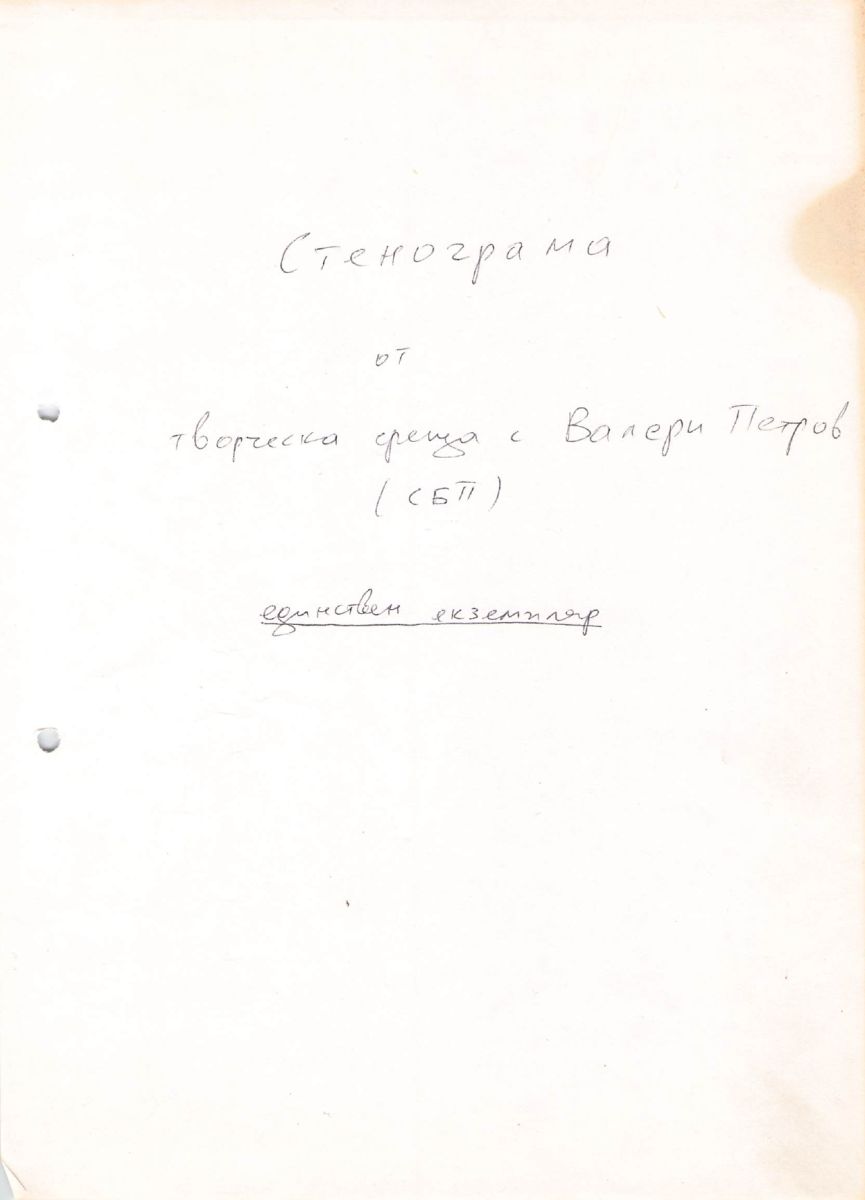 Стенограма
от
творческа среща с Валери Петров
(СБП)
единствен екземпляр